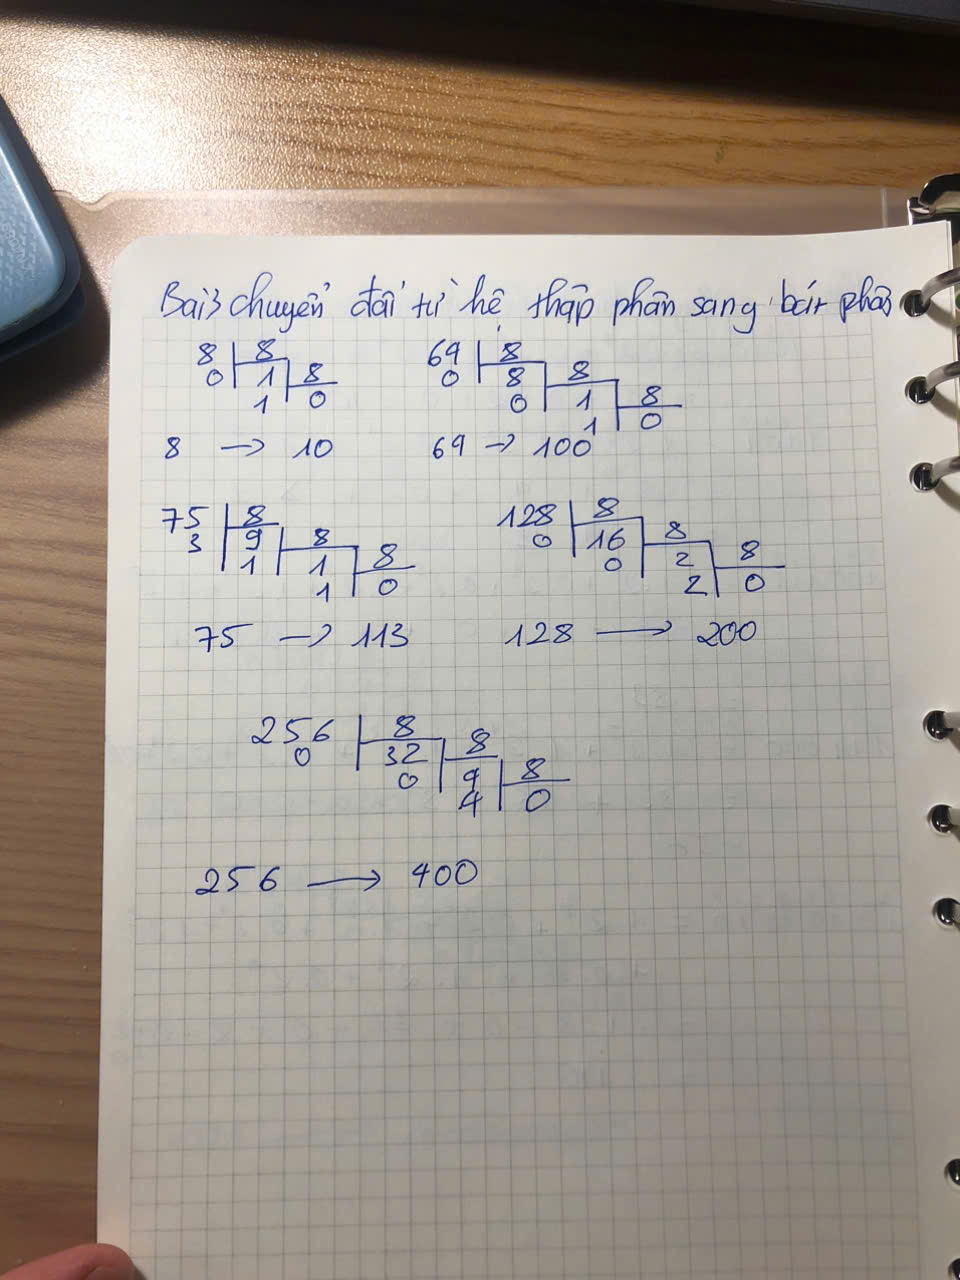 Bài 3 chuyển đổi từ hệ thập phân sang bát phân
8 8
0 1 8
1 0
8 → 10
64 8
0 8 8
0 1 8
1 0
64 → 100
75 8
3 9 8
1 1 8
1 0
75 → 113
128 8
0 16 8
0 2 8
2 0
128 → 200
256 8
0 32 8
0 4 8
4 0
256 → 400